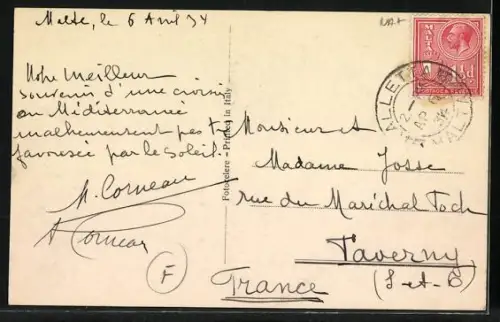 Malte, le 6 Avril 34
Notre meilleur
souvenir d'une croisière
en Méditerranée
malheureusement pas
favorisée par le soleil.
M. Corneau
A Corneau
F
Fotocelere - Printed in Italy
MALTA
VALLETTA
MALTA
Monsieur et
Madame Josse
rue du Maréchal Foch
Taverny
(S-et-O)
France